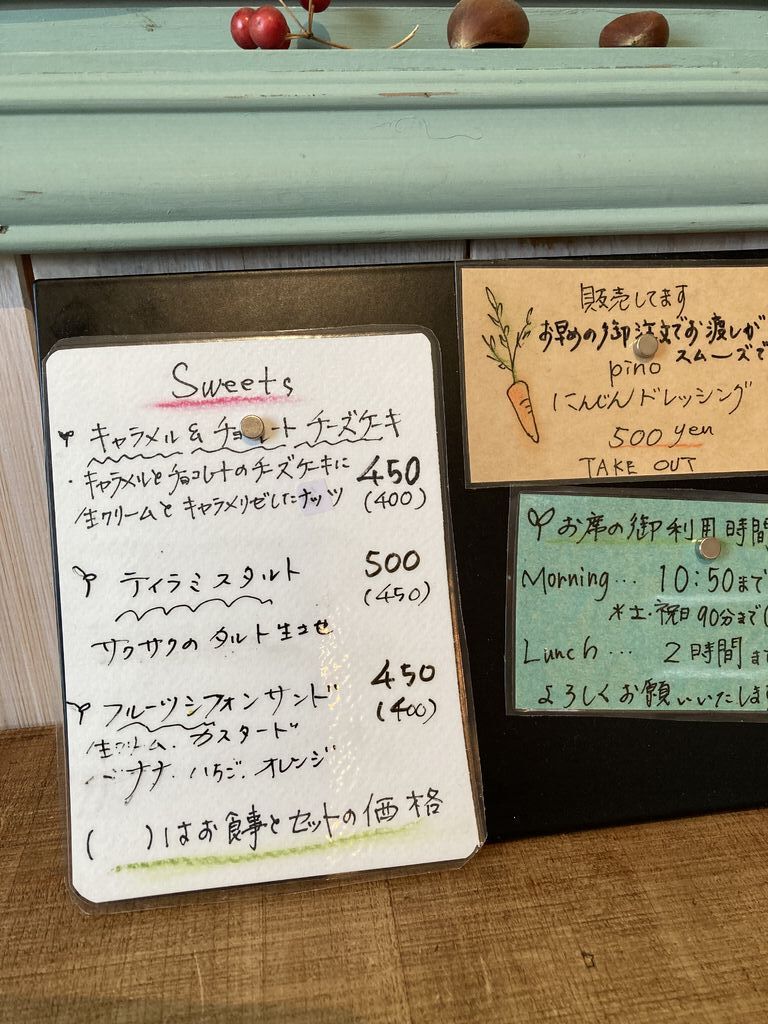 Sweets
キャラメル & チョコレート チーズケーキ
・キャラメルとチョコレートのチーズケーキに 450
生クリームとキャラメリゼしたナッツ (400)
ティラミスタルト 500
(450)
サクサクのタルト生地
フルーツシフォンサンド 450
生クリーム、カスタード (400)
バナナ、いちご、オレンジ
( )はお食事とセットの価格
販売してます
お早めの御注文でお渡しが
スムーズで
pino
にんじんドレッシング
500 yen
TAKE OUT
お席の御利用時間
Morning... 10:50まで
※土・祝日90分まで(
Lunch... 2時間ま
よろしくお願いいたします